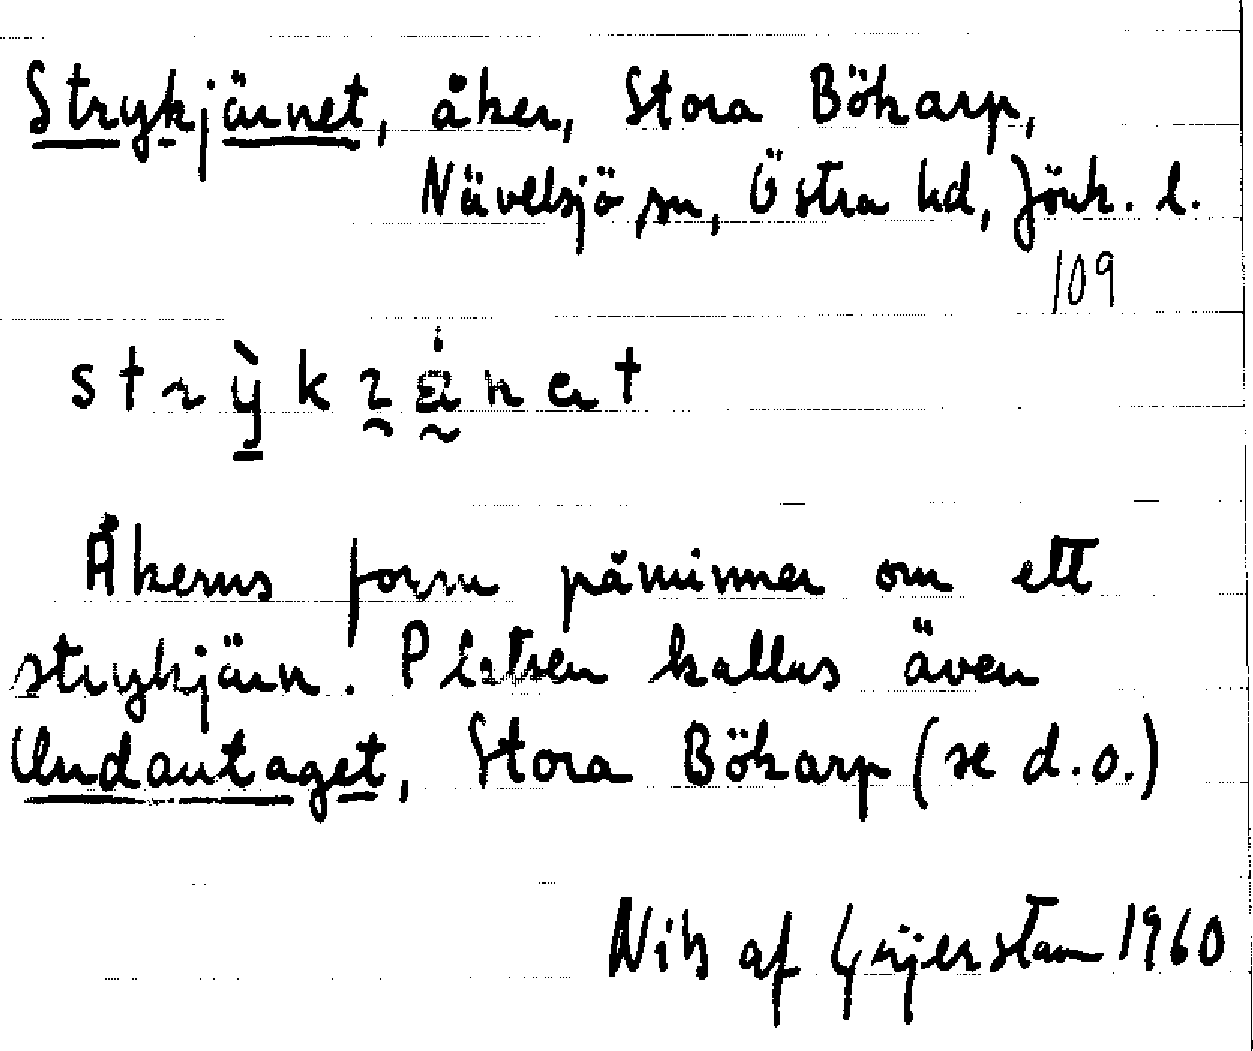 Strykjärnet, åker, Stora Bökarp,
Nävelsjö sn, Östra hd, Jönk. l.
109
Åkerns form påminner om ett
strykjärn. Platsen kallas även
Undantaget, Stora Bökarp (se d.o.)
Nils af Geijerstam 1960